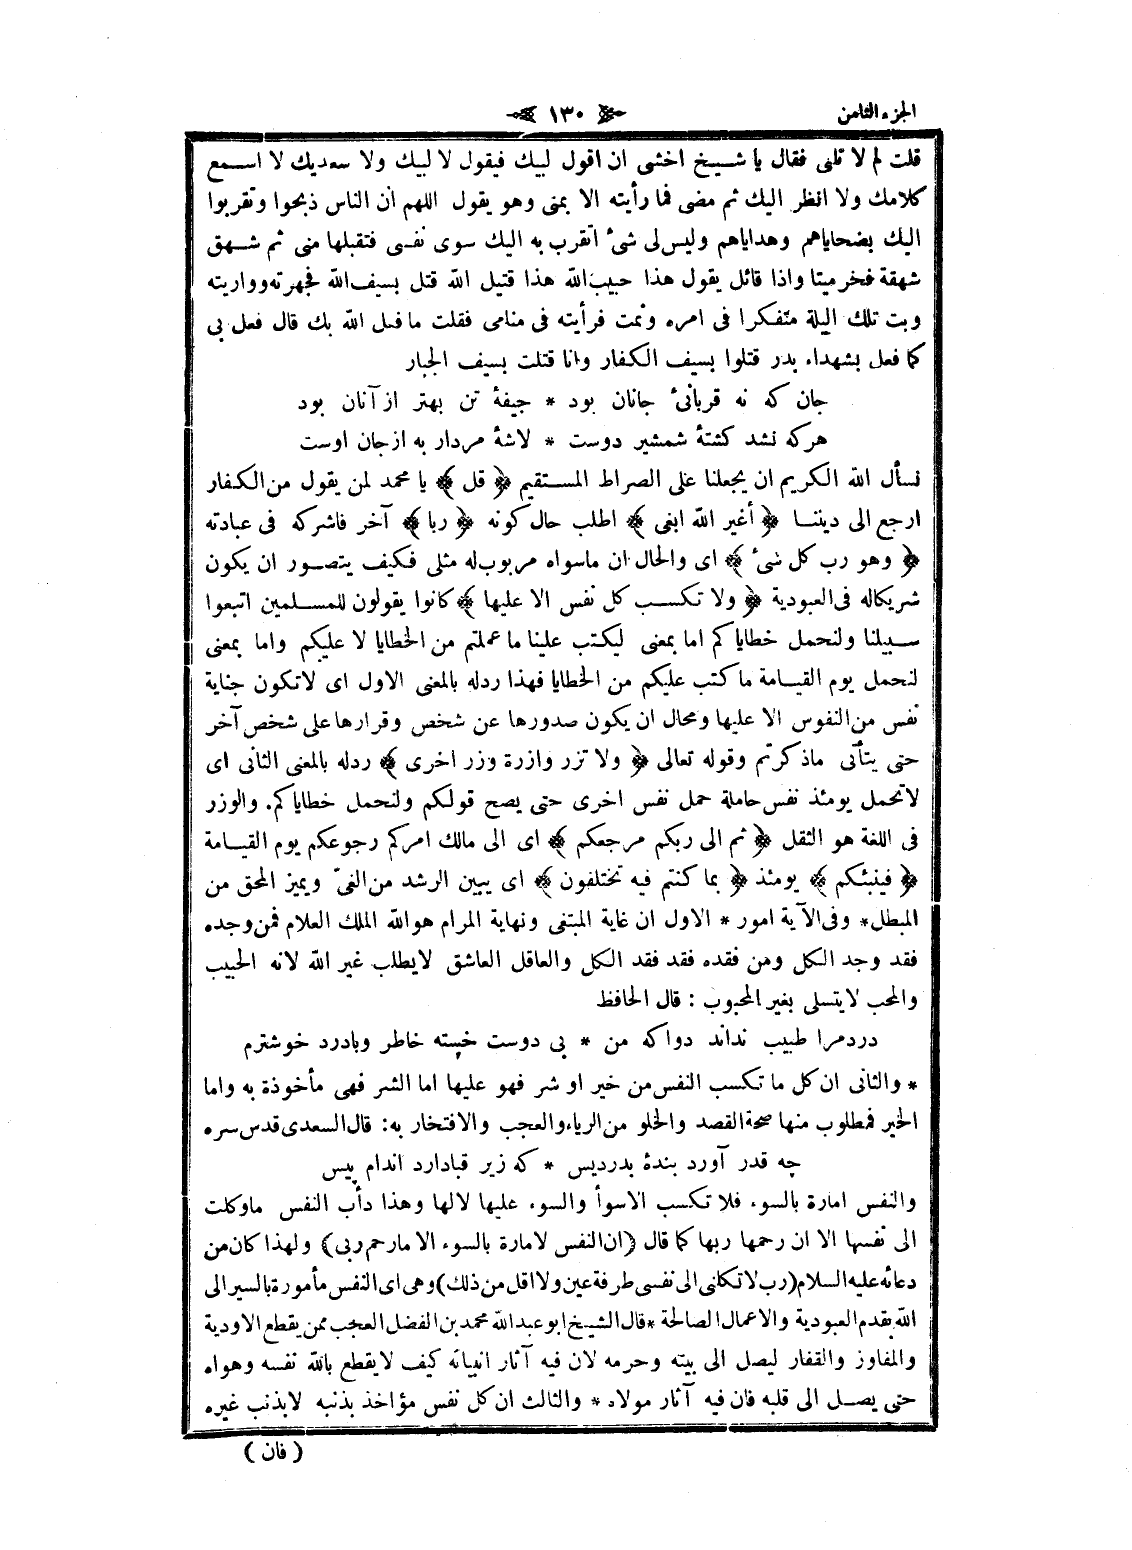 الجزء الثامن
١٣٠
قلت لم لا تلبى فقال يا شيخ اخشى ان اقول لبيك فيقول لا لبيك ولا سعديك لا اسمع
كلامك ولا انظر اليك ثم مضى فما رأيته الا بمنى وهو يقول اللهم ان الناس ذبحوا وتقربوا
اليك بضحاياهم وهداياهم وليس لى شئ اتقرب به اليك سوى نفسى فتقبلها منى ثم شهق
شهقة فخر ميتا واذا قائل يقول هذا حبيب الله هذا قتيل الله قتل بسيف الله فجهزته وواريته
وبت تلك الليلة متفكرا فى امره ونمت فرأيته فى منامى فقلت ما فعل الله بك قال فعل بى
كما فعل بشهداء بدر قتلوا بسيف الكفار وانا قتلت بسيف الجبار
جان كه نه قربانئ جانان بود * جيفۀ تن بهتر از آنان بود
هركه نشد كشتۀ شمشير دوست * لاشۀ مردار به از جان اوست
نسأل الله الكريم ان يجعلنا على الصراط المستقيم ﴿ قل ﴾ يا محمد لمن يقول من الكفار
ارجع الى ديننا ﴿ أغير الله ابغى ﴾ اطلب حال كونه ﴿ ربا ﴾ آخر فاشركه فى عبادته
﴿ وهو رب كل شئ ﴾ اى والحال ان ماسواه مربوب له مثلى فكيف يتصور ان يكون
شريكاله فى العبودية ﴿ ولا تكسب كل نفس الا عليها ﴾ كانوا يقولون للمسلمين اتبعوا
سبيلنا ولنحمل خطاياكم اما بمعنى ليكتب علينا ما عملتم من الخطايا لا عليكم واما بمعنى
لنحمل يوم القيامة ما كتب عليكم من الخطايا فهذا رد له بالمعنى الاول اى لا تكون جناية
نفس من النفوس الا عليها ومحال ان يكون صدورها عن شخص وقرارها على شخص آخر
حتى يتأتى ماذكرتم وقوله تعالى ﴿ ولا تزر وازرة وزر اخرى ﴾ رد له بالمعنى الثانى اى
لا تحمل يومئذ نفس حاملة حمل نفس اخرى حتى يصح قولكم ولنحمل خطاياكم. والوزر
فى اللغة هو الثقل ﴿ ثم الى ربكم مرجعكم ﴾ اى الى مالك امركم رجوعكم يوم القيامة
﴿ فينبئكم ﴾ يومئذ ﴿ بما كنتم فيه تختلفون ﴾ اى يبين الرشد من الغىّ ويميز المحق من
المبطل * وفى الآية امور * الاول ان غاية المبتغى ونهاية المرام هو الله الملك العلام فمن وجده
فقد وجد الكل ومن فقده فقد فقد الكل والعاقل العاشق لا يطلب غير الله لانه الحبيب
والمحب لا يتسلى بغير المحبوب : قال الحافظ
دردمرا طبيب نداند دوا كه من * بى دوست خسته خاطر وبادرد خوشترم
* والثانى ان كل ما تكسب النفس من خير او شر فهو عليها اما الشر فهى مأخوذة به واما
الخير فمطلوب منها صحة القصد والخلو من الرياء والعجب والافتخار به: قال السعدى قدس سره
چه قدر آورد بندۀ بدرديس * كه زير قبادارد اندام پيس
والنفس امارة بالسوء فلا تكسب الا سوأ والسوء عليها لا لها وهذا دأب النفس ماوكلت
الى نفسها الا ان رحمها ربها كما قال (ان النفس لامارة بالسوء الا مارحم ربى) ولهذا كان من
دعائه عليه السلام (رب لا تكلنى الى نفسى طرفة عين ولا اقل من ذلك) وهى اى النفس مأمورة بالسير الى
الله بقدم العبودية والاعمال الصالحة * قال الشيخ ابو عبدالله محمد بن الفضل العجب ممن يقطع الاودية
والمفاوز والقفار ليصل الى بيته وحرمه لان فيه آثار انبيائه كيف لا يقطع بالله نفسه وهواه
حتى يصل الى قلبه فان فيه آثار مولاه * والثالث ان كل نفس مؤاخذ بذنبه لا بذنب غيره
( فان )